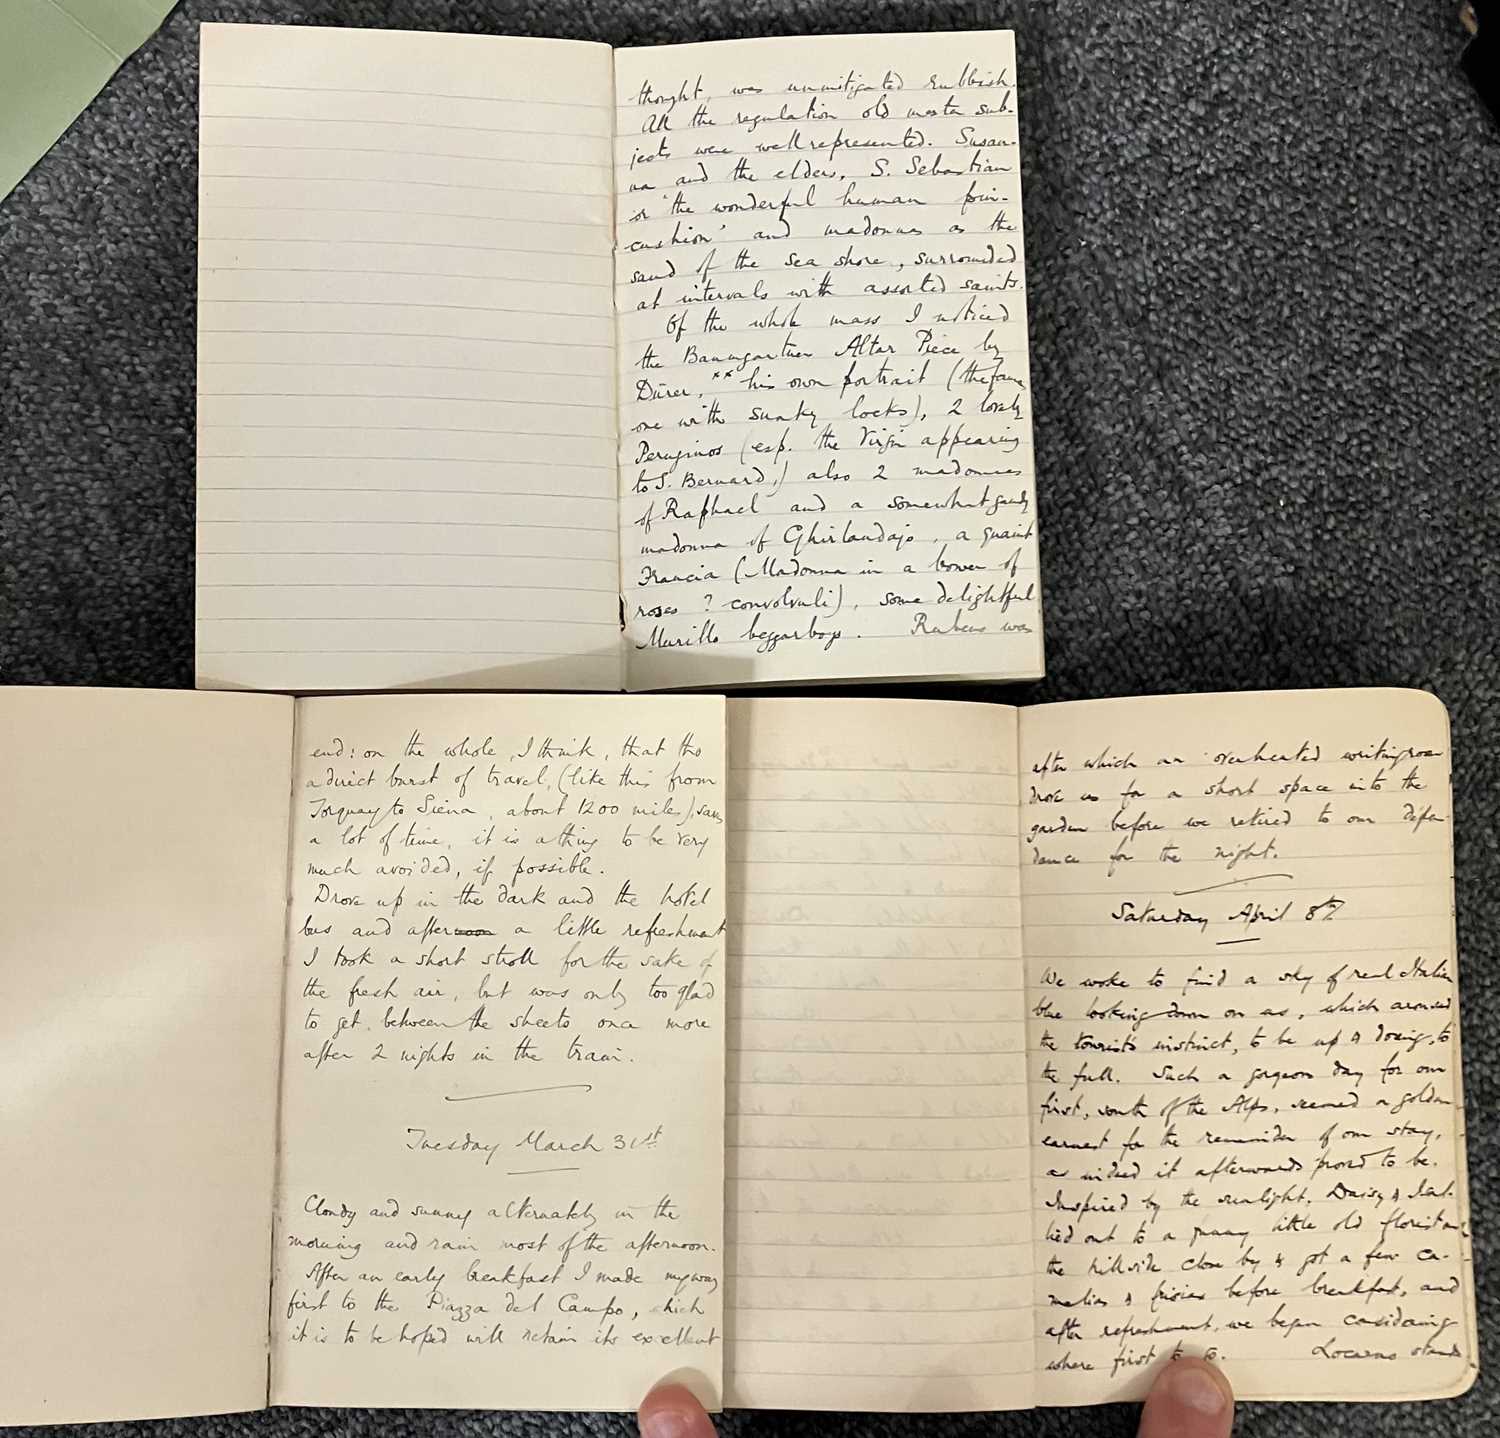 thought, was unmitigated rubbish.
All the regulation old master sub-
jects were well represented. Susan-
na and the elders, S. Sebastian
or 'the wonderful human pin-
cushion' and madonnas as the
sand of the sea shore, surrounded
at intervals with assorted saints.
Of the whole mass I noticed
the Baumgartner Altar Piece by
Dürer, ** his own portrait (the famous
one with snaky locks), 2 lovely
Peruginos (esp. the Virgin appearing
to S. Bernard,) also 2 madonnas
of Raphael and a somewhat gaudy
madonna of Ghirlandajo, a quaint
Francia (Madonna in a bower of
roses ? convolvuli), some delightful
Murillo beggarboys. Rubens was
end: on the whole, I think, that tho
a direct burst of travel, (like this from
Torquay to Siena, about 1200 miles), saves
a lot of time, it is a thing to be very
much avoided, if possible.
Drove up in the dark and the hotel
bus and after a little refreshment
I took a short stroll for the sake of
the fresh air, but was only too glad
to get between the sheets once more
after 2 nights in the train.
Tuesday March 31st
Cloudy and sunny alternately in the
morning and rain most of the afternoon.
After an early breakfast I made my way
first to the Piazza del Campo, which
it is to be hoped will retain its excellent
after which an overheated writing room
drove us for a short space into the
garden before we retired to our depen-
dance for the night.
Saturday April 8th
We woke to find a sky of real Italian
blue looking down on us, which aroused
the tourist's instinct, to be up & doing, to
the full. Such a gorgeous day for our
first, south of the Alps, seemed a golden
earnest for the remainder of our stay,
as indeed it afterwards proved to be.
Inspired by the sunlight, Daisy & I sal-
lied out to a funny little old florist on
the hillside close by & got a few ca-
melias & frisias before breakfast, and
after refreshment, we began considering
where first to go. Locarno stands